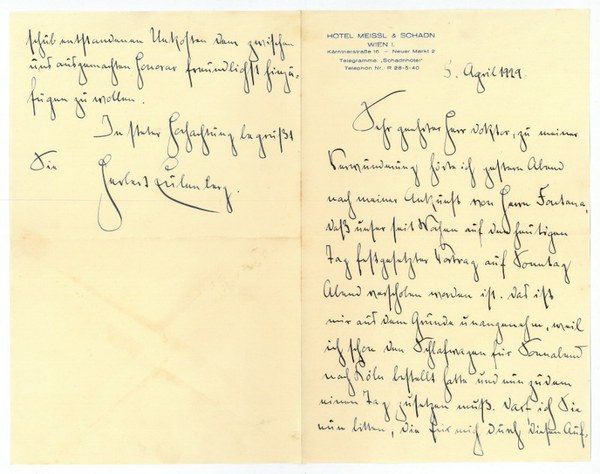 HOTEL MEISSL & SCHADN
WIEN I.
Kärntnerstraße 16 - Neuer Markt 2
Telegramme: „Schadnhotel"
Telephon Nr. R 28-5-40
5. April 1929.
Sehr geehrter Herr Doktor, zu meiner
Verwunderung hörte ich gestern Abend
nach meiner Ankunft von Herrn Fontana,
daß unser seit Wochen auf den heutigen
Tag festgesetzter Vortrag auf Sonntag
Abend verschoben worden ist. Das ist
mir aus dem Grunde unangenehm, weil
ich schon den Schlafwagen für Sonnabend
nach Köln bestellt hatte und nun zudem
einen Tag zusetzen muß. Darf ich Sie
nun bitten, die für mich durch diesen Auf-
schub entstandenen Unkosten dem zwischen
uns ausgemachten Honorar freundlichst hinzu-
fügen zu wollen.
In steter Hochachtung begrüßt
Sie Herbert Eulenberg.